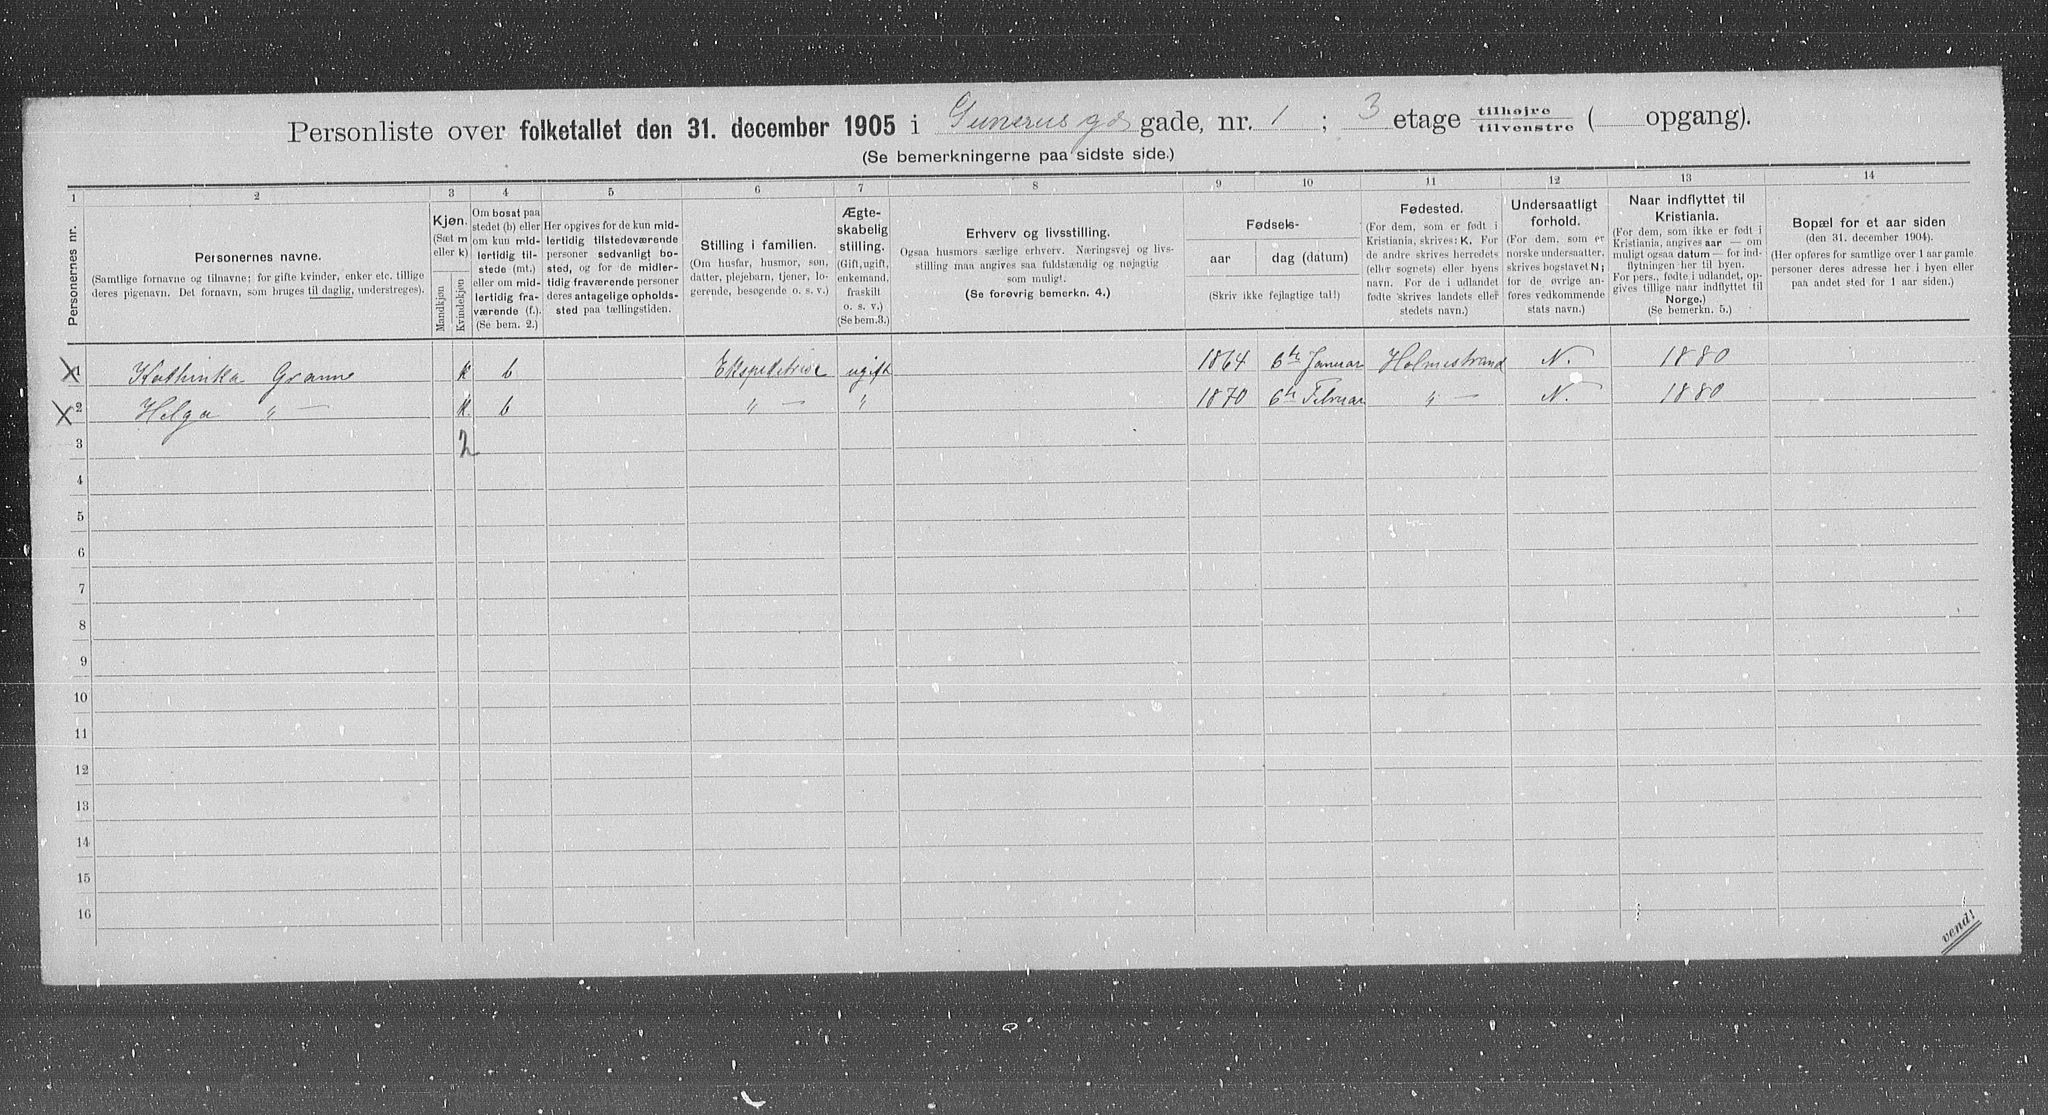 Personliste over folketallet den 31. december 1905 i Gunerus gd gade, nr. 1 ; 3 etage tilhøjre / tilvenstre ( opgang).
(Se bemerkningerne paa sidste side.)
1 2 3 4 5 6 7 8 9 10 11 12 13 14
Personernes nr.
Personernes navne.
(Samtlige fornavne og tilnavne; for gifte kvinder, enker etc. tillige
deres pigenavn. Det fornavn, som bruges til daglig, understreges).
Kjøn.
(Sæt m
eller k)
Mandkjøn
Kvindekjøn
Om bosat paa
stedet (b) eller
om kun mid-
lertidig til-
stede (mt.)
eller om mid-
lertidig fra-
værende (f.).
(Se bem. 2.)
Her opgives for de kun mid-
lertidig tilstedeværende
personer sedvanligt bo-
sted, og for de midler-
tidig fraværende personer
deres antagelige opholds-
sted paa tællingstiden.
Stilling i familien.
(Om husfar, husmor, søn,
datter, plejebarn, tjener, lo-
gerende, besøgende o. s. v.)
Ægte-
skabelig
stilling.
(Gift, ugift,
enkemand,
fraskilt
o. s. v.)
(Se bem.3.)
Erhverv og livsstilling.
Ogsaa husmors særlige erhverv. Næringsvej og livs-
stilling maa angives saa fuldstændig og nøjagtig
som muligt.
(Se forøvrig bemerkn. 4.)
Fødsels-
aar dag (datum)
(Skriv ikke fejlagtige tal!)
Fødested.
(For dem, som er født i
Kristiania, skrives: K. For
de andre skrives herredets
(eller sognets) eller byens
navn. For de i udlandet
fødte skrives landets eller
stedets navn.)
Undersaatligt
forhold.
(For dem, som er
norske undersaatter,
skrives bogstavet N;
for de øvrige an-
føres vedkommende
stats navn.)
Naar indflyttet til
Kristiania.
(For dem, som ikke er født i
Kristiania, angives aar — om
muligt ogsaa datum — for ind-
flytningen her til byen.
For pers., fødte i udlandet, op-
gives tillige naar indflyttet til
Norge.)
(Se bemerkn. 5.)
Bopæl for et aar siden
(den 31. december 1904).
(Her opføres for samtlige over 1 aar gamle
personer deres adresse her i byen eller
paa andet sted for 1 aar siden.)
1 Kathinka Granne k b Ekspeditrise ugift 1864 6te Januar Holmestrand N. 1880
2 Helga " — k. b " — " 1870 6te Februar " — N. 1880
3 2
4
5
6
7
8
9
10
11
12
13
14
15
16
vend!